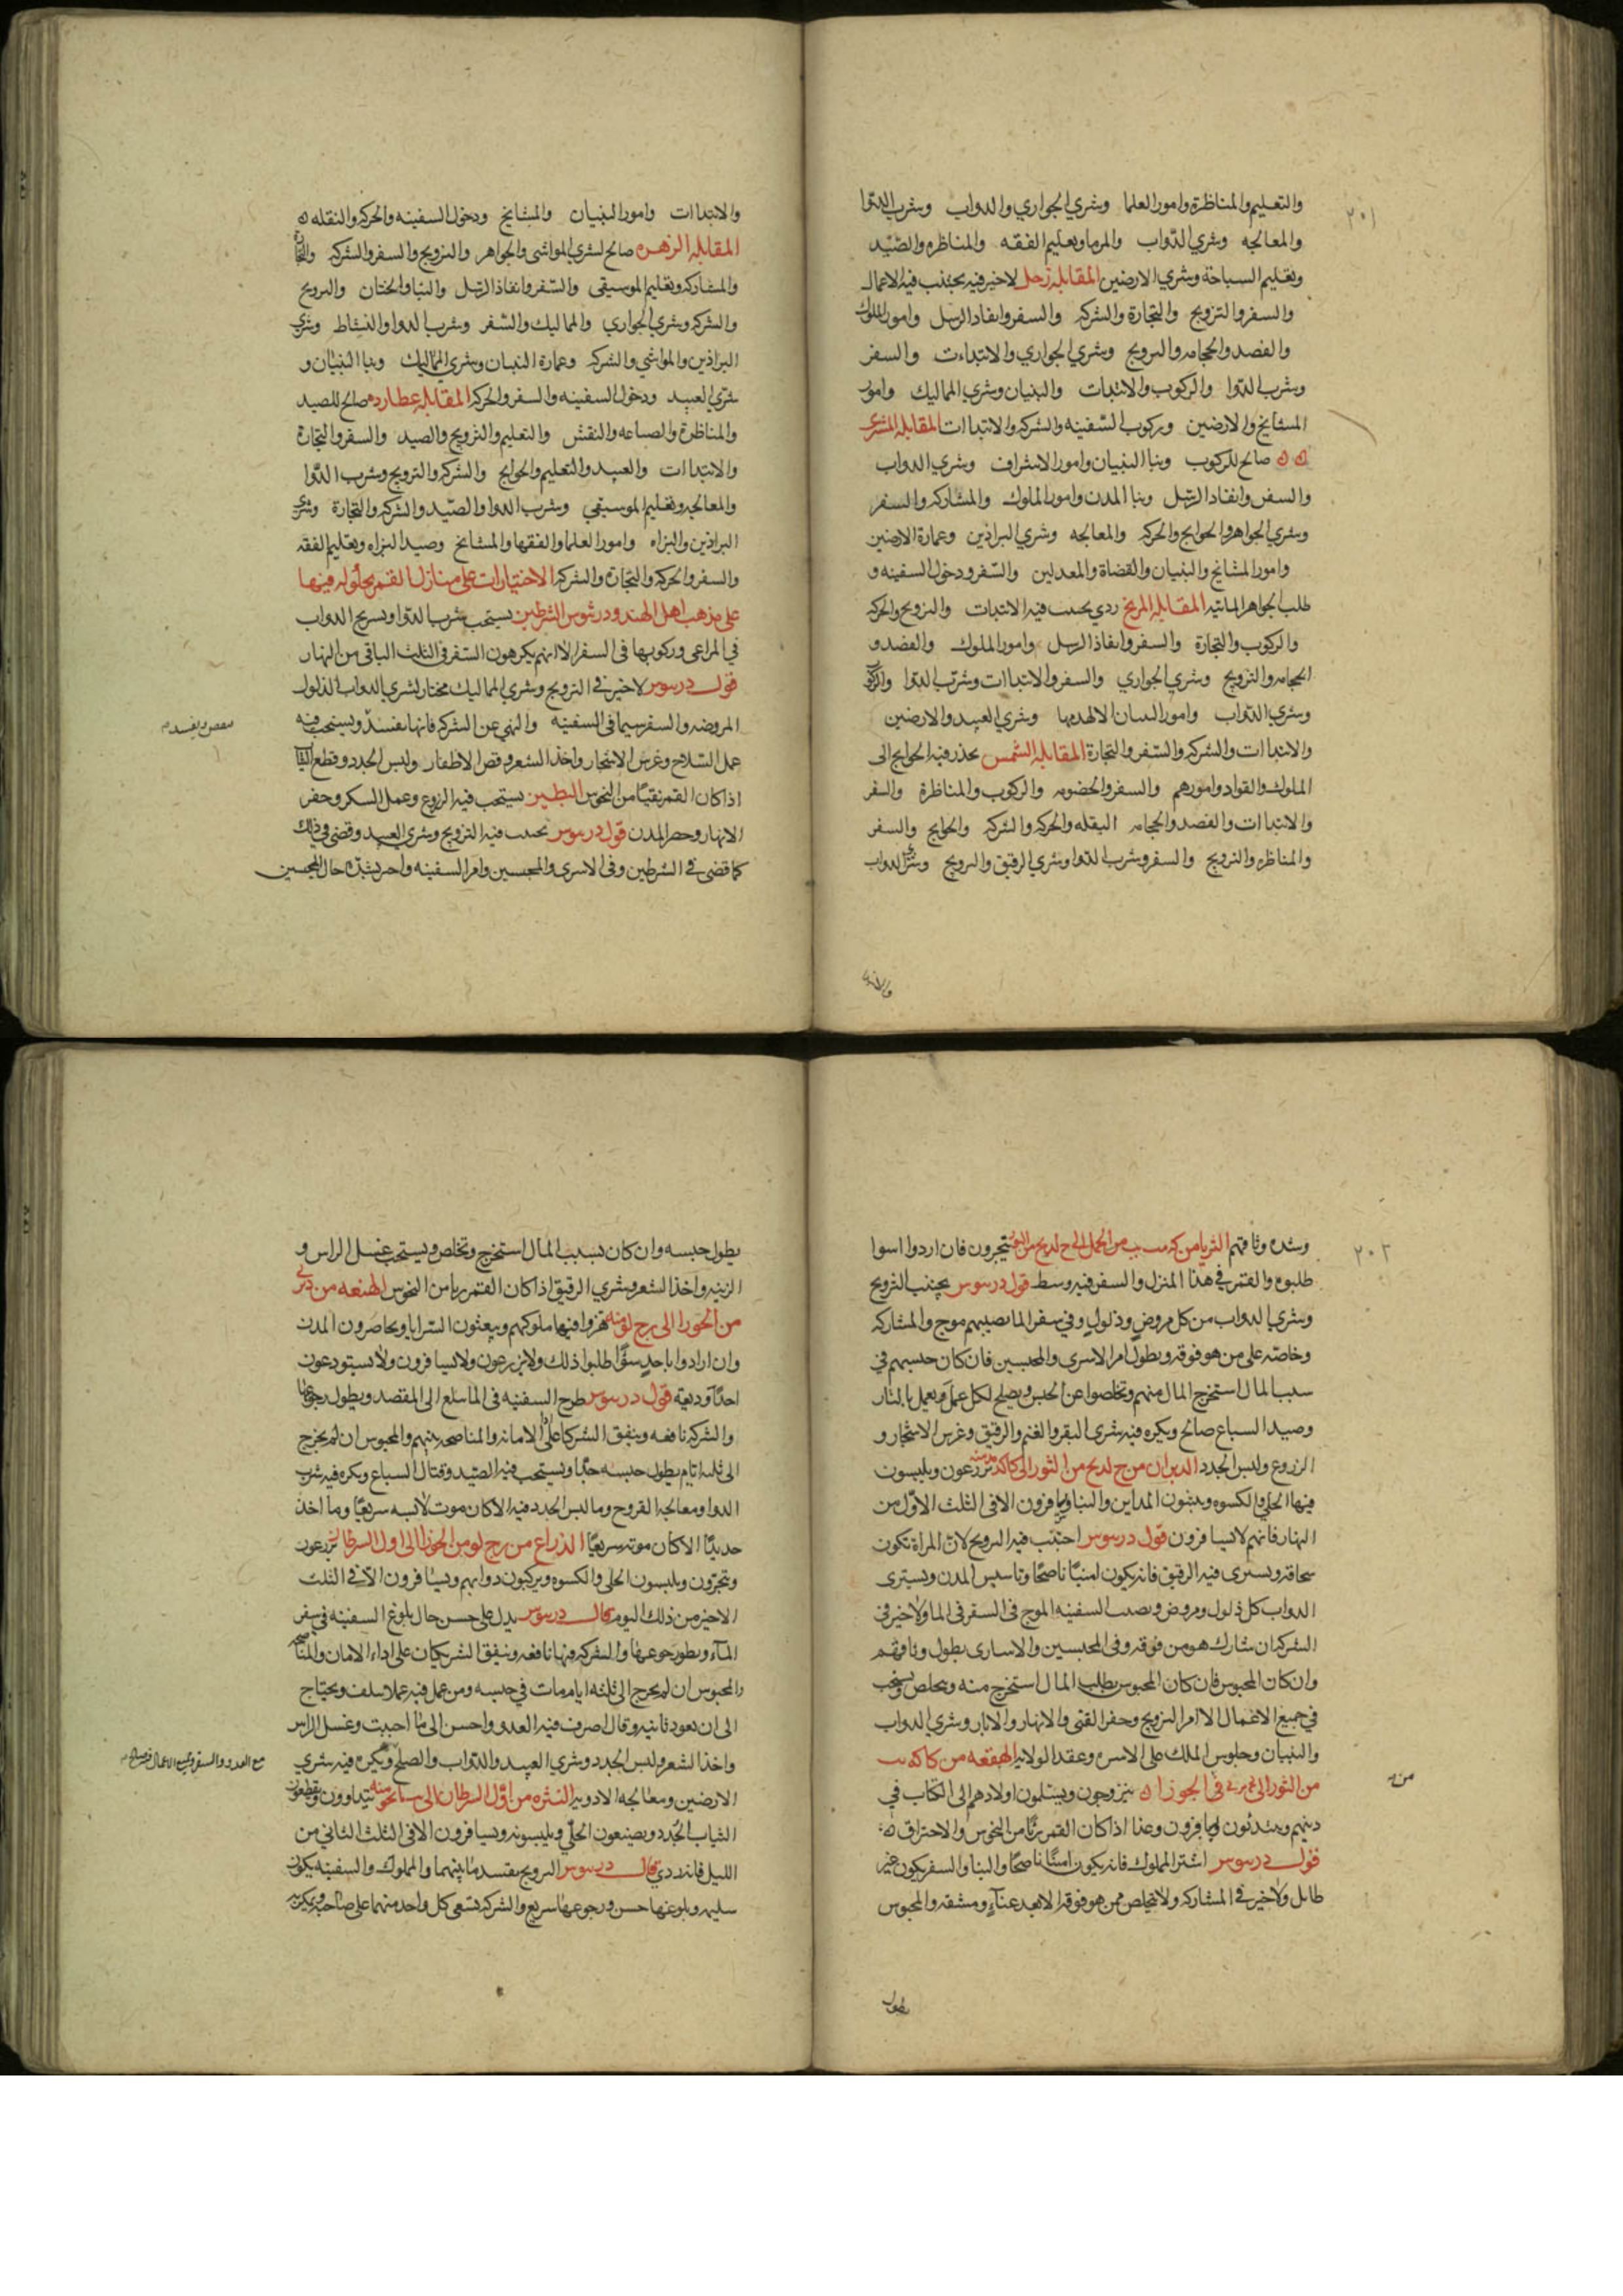 ٢٠١
والتعليم والمناظرة وامور العلما وشري الجواري والدواب وشرب الدوا
والمعالجه وشري الدواب والرما وتعليم الفقه والمناظره والصيد
وتعليم السباحة وشري الارضين المقابله زحل لا خير فيه يجتنب فيه الاعمال
والسفر والتزويج والتجارة والشركه والسفر وانفاد الرسل وامور الملوك
والفصد والحجامه والتزويج وشري الجواري والابتداءت والسفر
وشرب الدوا والركوب والابتدات والبنيان وشري المماليك وامور
المشايخ والارضين وركوب السفينه والشركه والابتداات المقابله المشتري
صالح للركوب وبنا البنيان وامور الاشراف وشري الدواب
والسفر وانفاد الرسل وبنا المدن وامور الملوك والمشاركه والسفر
وشري الجواهر والحوايج والحركه والمعالجه وشري البراذين وعمارة الارضين
وامور المشايخ والبنيان والقضاة والمعدلين والسفر ودخول السفينه و
طلب الجواهر المائيه المقابله المريخ ردي يجتنب فيه الابتدات والتزويج والحركه
والركوب والتجارة والسفر وانفاذ الرسل وامور الملوك والفصد و
الحجامه والتزويج وشري الجواري والسفر والابتداات وشرب الدوا والركوب
وشري الدواب وامور البنيان الا لهدمها وشري العبيد والارضين
والابتداات والشركه والسفر والتجارة المقابله الشمس يحذر فيه الحوايج الى
الملوك والقواد وامورهم والسفر والخصومه والركوب والمناظرة والسفر
والابتداات والفصد والحجامه النقله والحركه والشركه والحوايج والسفر
والمناظره والتزويج والسفر وشرب الدوا وشري الرقيق والتزويج وشري الدواب
والابتدا
والابتداات وامور البنيان والمشايخ ودخول السفينه والحركه والنقله
المقابله الزهره صالح لشري المواشى والجواهر والتزويج والسفر والشركه والتجارة
والمشاركه وتعليم الموسيقى والسفر وانفاذ الرسل والبنا والختان والتزويج
والشركه وشري الجواري والمماليك والسفر وشرب الدوا والنشاط وشري
البراذين والمواشي والشركه وعمارة البنيان وشري المماليك وبنا البنيان و
شري العبيد ودخول السفينه والسفر والحركه المقابله عطارد صالح للصيد
والمناظرة والصناعه والنقش والتعليم والتزويج والصيد والسفر والتجارة
والابتداات والعبيد والتعليم والحوايج والشركه والتزويج وشرب الدوا
والمعالجه وتعليم الموسيقي وشرب الدوا والصيد والشركه والتجارة وشري
البراذين والبزاه وامور العلما والفقها والمشايخ وصيد البزاه وتعليم الفقه
والسفر والحركه والتجارة والشركه الاختيارات على منازل القمر بحلوله فيها
على مذهب اهل الهند ودرثيوس الشرطين يستحب شرب الدوا وتسريح الدواب
في المراعى وركوبها فى السفر الا انهم يكرهون السفر فى الثلث الباقى من النهار
قول دريوس لا خير في التزويج وشري المماليك مختار لشري الدواب الذلول
المروضه والسفر سيما فى السفينه والنهي عن الشركه فانها تفسد ويستحب فيه
عمل السلاح وغرس الاشجار واخذ الشعر وقص الاظفار ولبس الجدد وقطع الثياب
اذا كان القمر نقيا من النحوس البطين يستحب فيه الزروع وعمل السكر وحفر
الانهار وحصر المدن قول دريوس يجتنب فيه التزويج وشري العبيد وقضى في ذلك
كما قضى في الشرطين وفى الاسرى والمحبسين وامر السفينه واخر بشدة حال المحبسين
٢٠٢
وشده وثاقهم الثريا من من الحمل الى يتجرون فان اردوا اسوا
طلبوه والقمر في هذا المنزل والسفر فيه وسط قول دريوس يجتنب التزويج
وشري الدواب من كل مروض وذلول وفي سفر الما نصيبهم موج والمشاركه
وخاصه على من هو فوقه ويطول امر الاسرى والمحبسين فان كان حبسهم في
سبب المال استخرج المال منهم وتخلصوا عن الحبس ويصلح لكل عمل يعمل بالنار
وصيد السباع صالح ويكره فيه شرى البقر والغنم والرقيق وغرس الاشجار و
الزروع ولبس الجدد الدبران من من الثور الى يزرعون ويلبسون
فيها الحلي والكسوه ويبنون المداين والبنا ولا يسافرون الا فى الثلث الاول من
النهار فانهم لا يسافرون قول دريوس اجتنب فيه التزويج لان المراة تكون
سحاقه ويسترى فيه الرقيق فانه يكون امينا ناصحا وتاسيس المدن ويسترى
الدواب كل ذلول ومروض ويصيب السفينه الموج فى السفر فى الما ولا خير فى
الشركه ان شارك هو من فوقه وفى المحبسين والاسارى يطول وثاقهم
وان كان المحبوس فان كان المحبوس بطلب المال استخرج منه ويخلص ويستحب
في جميع الاعمال الا امر التزويج وحفر القنى والانهار والابار وشري الدواب
والبنيان وجلوس الملك على الاسره وعقد الولايه الهقعه من
من الثور الى في الجوزا يتزوجون ويسلمون اولادهم الى الكتاب في
دينهم ويسافرون اذا كان القمر بريا من النحوس والاحتراق
قول دريوس اشتر المملوك فانه يكون امينا ناصحا والبنا والسفر يكون غير
طايل ولا خير في المشاركه ولا يتخلص ممن هو فوقه الا بعد عناء ومشقه والمحبوس
يطول
يطول حبسه وان كان بسبب المال استخرج وتخلص ويستحب غسل الراس و
الزينه واخذ الشعر وشري الرقيق اذا كان القمر بريا من النحوس الهنعه من
من الجوزا الى يغزوا فيها ملوكهم ويبعثون السرايا ويحاصرون المدن
وان ارادوا باحد سوا طلبوا ذلك ولا يزرعون ولا يسافرون ولا يستودعون
احدا وديعه قول دريوس طرح السفينه فى الما تبلغ الى المقصد ويطول رجوعها
والشركه نافعه ويتفق الشركا على الامانه والمناصحه بينهم والمحبوس ان لم يخرج
الى ثلثه ايام يطول حبسه جدا ويستحب فيه الصيد وقتال السباع ويكره فيه شرب
الدوا ومعالجه القروح وما لبس الجدد فيه الا كان موت لابسه سريعا وما اخذ
حديدا الا كان موته سريعا الذراع من من الجوزا الى اول السرطان يزرعون
ويتجرون ويلبسون الحلى والكسوه ويركبون دوابهم ويسافرون الا في الثلث
الاخير من ذلك اليوم قال دريوس يدل على حسن حال بلوغ السفينه في سفر
الماء ويطول رجوعها والشركه فيها نافعه ويتفق الشريكان على اداء الامان والمناصحه
والمحبوس ان لم يخرج الى ثلثه ايام مات في حبسه ومن عمل فيه عملا سلف ويحتاج
الى ان يعود ثانيه وقال اصرف فيه العدو واحسن الى ما احببت وغسل الراس
واخذ الشعر ولبس الجدد وشري العبيد والدواب والصلح ويكره فيه شري
الارضين ومعالجه الادويه النثره من اول السرطان الى يتداوون ويقطعون
الثياب الجدد ويصنعون الحلي ويلبسونه ويسافرون الا فى الثلث الثاني من
الليل فانه ردي قال دريوس التزويج يفسد ما بينهما والمملوك والسفينه يكون
سليمه وبلوغها حسن ورجوعها سريع والشركه يسعى كل واحد منهما على صاحبه